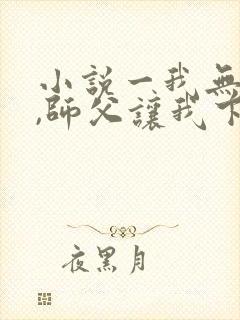 小說一我無
,師父讓我下
夜黑月